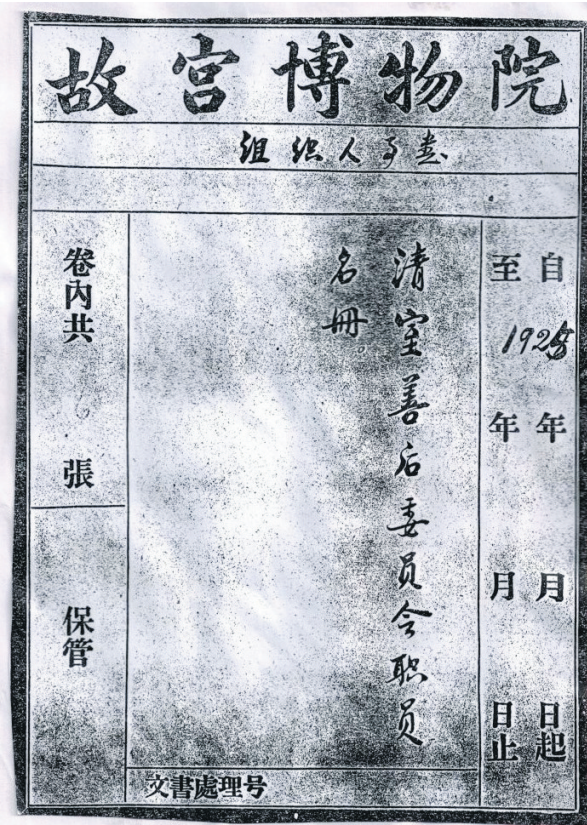 故宫博物院
组织人事类
自 1925 年 月 日起
至 年 月 日止
清室善后委员会职员
名册。
卷內共 6 張
保管
文書處理号